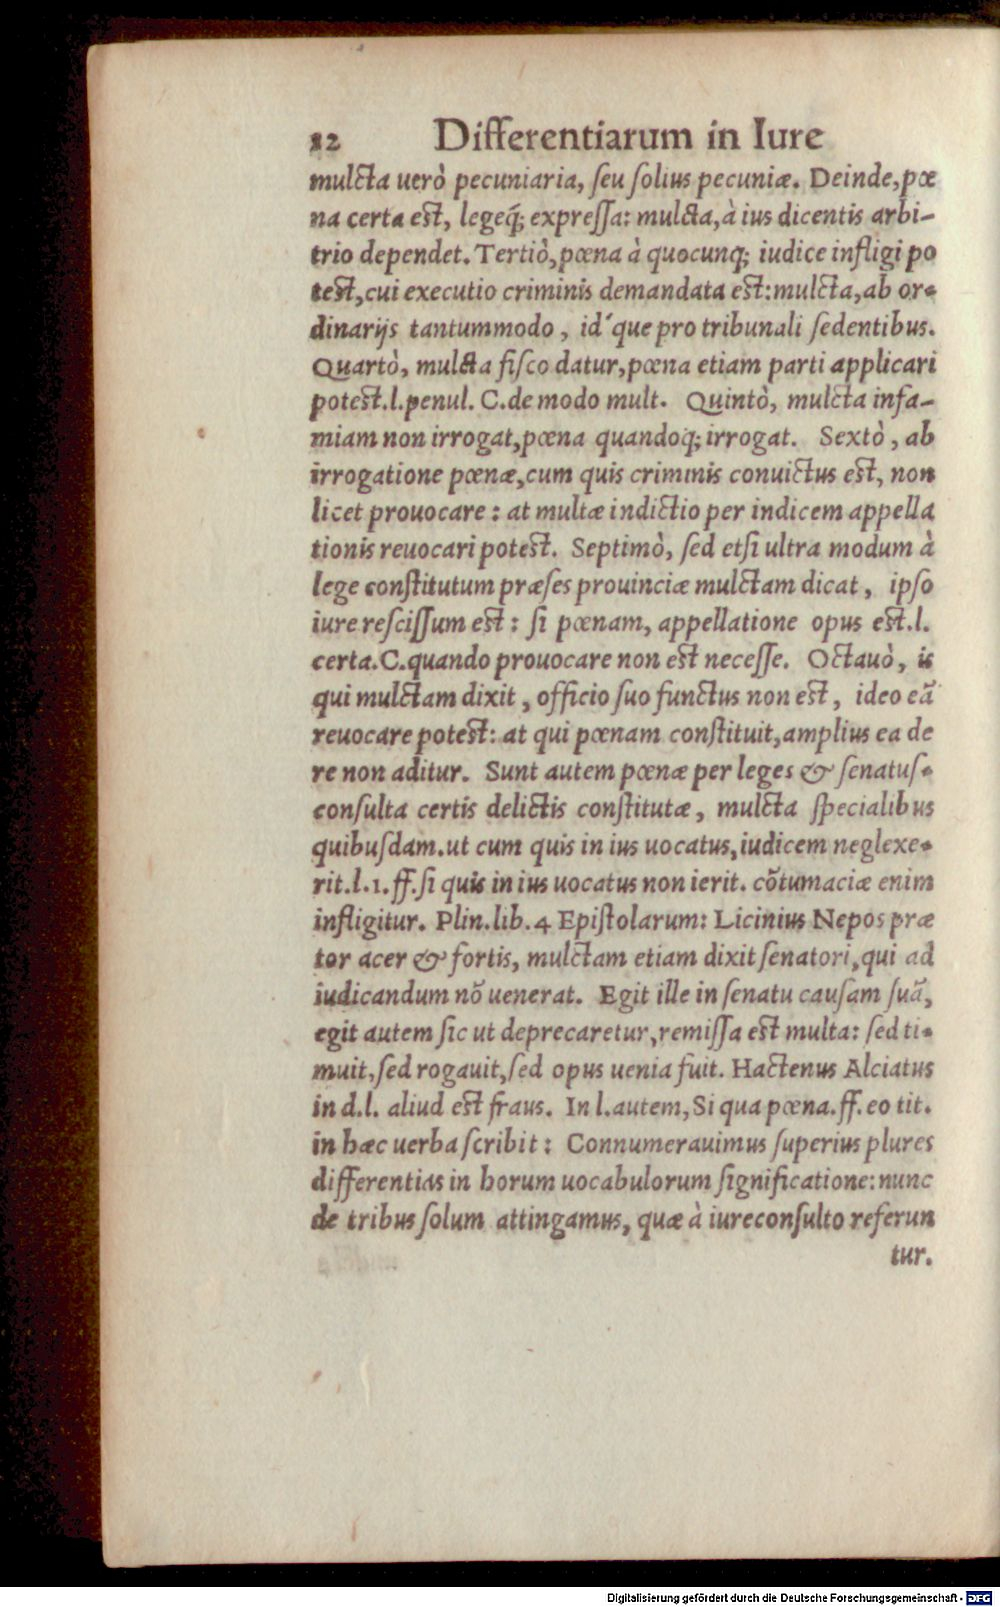 12 Differentiarum in Iure
mulcta uerò pecuniaria, ſeu ſolius pecuniæ. Deinde, pœ
na certa est, legeq́; expreſſa: mulcta, à ius dicentis arbi-
trio dependet. Tertiò, pœna à quocunq; iudice infligi po
test, cui executio criminis demandata est: mulcta, ab or-
dinarijs tantummodo, id´que pro tribunali ſedentibus.
Quartò, mulcta fiſco datur, pœna etiam parti applicari
potest.l.penul. C.de modo mult. Quintò, mulcta infa-
miam non irrogat, pœna quandoq; irrogat. Sextò, ab
irrogatione pœnæ, cum quis criminis conuictus est, non
licet prouocare: at multæ indictio per indicem appella
tionis reuocari potest. Septimò, ſed etſi ultra modum à
lege conſtitutum præſes prouinciæ mulctam dicat, ipſo
iure reſciſſum est: ſi pœnam, appellatione opus est.l.
certa.C.quando prouocare non est neceſſe. Octauò, is
qui mulctam dixit, officio ſuo functus non est, ideo eã
reuocare potest: at qui pœnam conſtituit, amplius ea de
re non aditur. Sunt autem pœnæ per leges & ſenatuſ-
conſulta certis delictis conſtitutæ, mulcta ſpecialibus
quibuſdam. ut cum quis in ius uocatus, iudicem neglexe-
rit.l.1.ff.ſi quis in ius uocatus non ierit. cõtumaciæ enim
infligitur. Plin.lib.4 Epiſtolarum: Licinius Nepos præ
tor acer & fortis, mulctam etiam dixit ſenatori, qui ad
iudicandum nõ uenerat. Egit ille in ſenatu cauſam ſuã,
egit autem ſic ut deprecaretur, remiſſa est multa: ſed ti-
muit, ſed rogauit, ſed opus uenia fuit. Hactenus Alciatus
in d.l. aliud est fraus. In l.autem, Si qua pœna.ff.eo tit.
in hæc uerba ſcribit: Connumerauimus ſuperius plures
differentias in horum uocabulorum ſignificatione: nunc
de tribus ſolum attingamus, quæ à iureconſulto referun
tur.
Digitalisierung gefördert durch die Deutsche Forschungsgemeinschaft - DFG